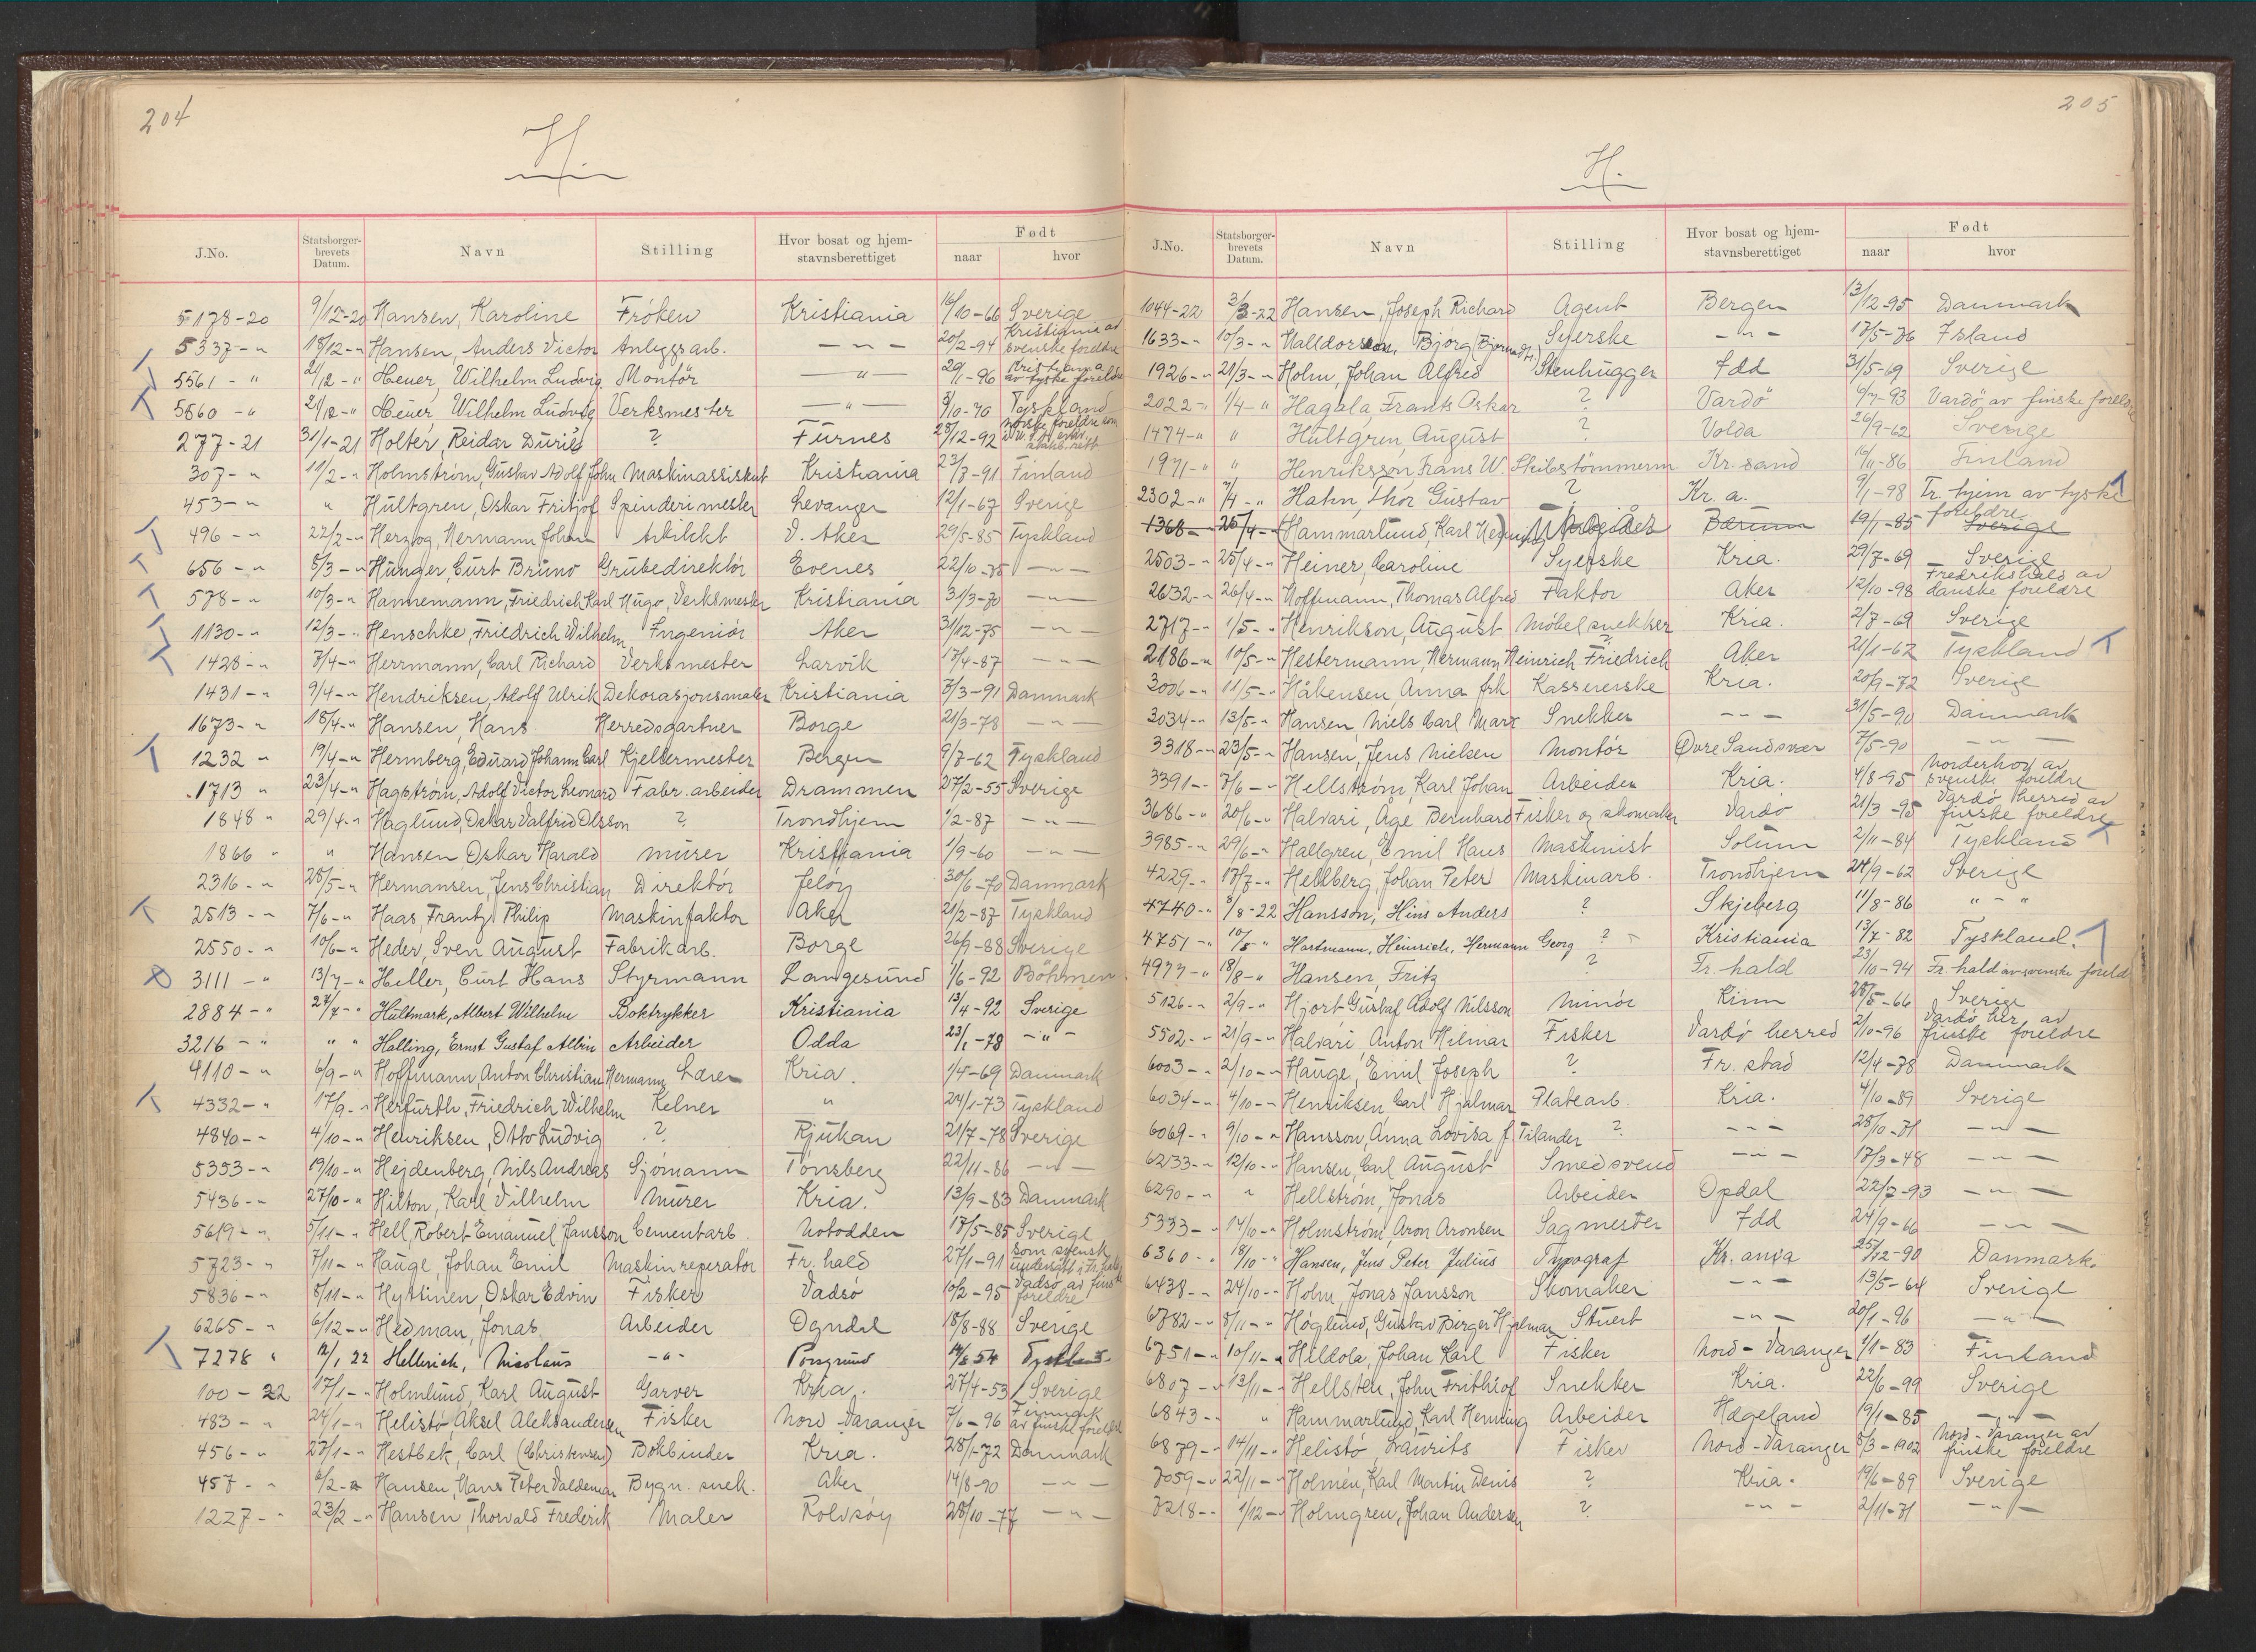 204
H.
J.No. Statsborgerbrevets Datum. Navn Stilling Hvor bosat og hjemstavnsberettiget Født naar hvor
5178-20 9/12-20 Hansen, Karoline Frøken Kristiania 16/10-66 Sverige
5337-" 18/12-" Hansen, Anders Victor Anleggsarb. -"- 20/2-94 Kristiania av svenske foreldre
5561-" 21/12-" Heuer, Wilhelm Ludvig Montör -"- 29/1-96 Kristiania av tyske foreldre
5560-" 21/12-" Heuer Wilhelm Ludvig Verksmester -"- 3/10-70 Tyskland
277-21 31/1-21 Holter, Reidar ? Furnes 28/12-92 norske foreldre som
307-" 11/2-" Holmstrøm, Gustav Adolf John Maskinassistent Kristiania 23/7-91 Finland
453-" " Hultgren, Oskar Fritjof Spinderimester Levanger 12/1-67 Sverige
496-" 22/2-" Herzog, Hermann Johan Arkitekt V. Aker 29/5-85 Tyskland
656-" 5/3-" Hunger, Curt Bruno Grubedirektör Evenes 22/10-75 -"-
578-" 10/3-" Hannemann, Friedrich Karl Hugo, Verksmester Kristiania 31/3-70 -"-
1130-" 12/3-" Henschke, Friedrich Wilhelm Ingeniör Aker 31/12-75 -"-
1428-" 7/4-" Herrmann, Carl Richard Verksmester Larvik 17/4-87 -"-
1431-" 9/4-" Hendriksen, Adolf Ulrik Dekorasjonsmaler Kristiania 7/3-91 Danmark
1673-" 18/4-" Hansen, Hans Herredsgartner Borge 21/3-78 -"-
1232 " 19/4-" Hermberg, Eduard Johann Carl Kjellermester Bergen 9/7-62 Tyskland
1713 " 23/4-" Hagstrøm, Adolf Victor Leonard Fabr. arbeider Drammen 27/2-55 Sverige
1848 " 29/4-" Haglund, Oskar Valfrid Olsson ? Trondhjem 1/2-87 -"-
1866 " " Hansen Oskar Harald Murer Kristiania 1/9-60 -"-
2316-" 28/5-" Hermansen, Jens Christian Direktör Jeløy 30/6-70 Danmark
2513-" 7/6-" Haas, Frantz Philip Maskinfaktor Aker 21/2-87 Tyskland
2550-" 10/6-" Heder, Sven August Fabrikarb. Borge 26/9-88 Sverige
3111-" 13/7-" Heller, Curt Hans Styrmann Langesund 1/6-92 Böhmen
2884-" 27/7-" Hultmark, Albert Wilhelm Boktrykker Kristiania 13/4-92 Sverige
3216-" " " Halling, Ernst Gustaf Albin Arbeider Odda 23/1-78 -"-
4110-" 6/9-" Hoffmann, Anton Christian Hermann Lærer Kria. 1/4-69 Danmark
4332-" 17/9-" Herfurth, Friedrich Wilhelm Kelner " 24/1-73 Tyskland
4840-" 4/10-" Henriksen, Otto Ludvig ? Rjukan 21/7-78 Sverige
5353-" 19/10-" Hejdenberg, Nils Andreas Sjömann Tönsberg 22/11-86 -"-
5436-" 27/10-" Hilton, Karl Vilhelm Murer Kria. 13/9-83 Danmark
5619-" 5/11-" Hell, Robert Emanuel Jansson Cementarb. Notodden 17/5-85 Sverige
5723-" 7/11-" Hauge, Johan Emil Maskinreperatör Fr. hald 27/1-91 som svensk undersått i Fr.hald
5836-" 8/11-" Hyttinen, Oskar Edvin Fisker Vadsö 10/2-95 Vadsø av finske foreldre
6265-" 6/12-" Hedman, Jonas Arbeider Ogndal 18/8-88 Sverige
7278 " 12/1 22 Hellerich, Nicolaus -"- Porsgrund 14/8 54 Tyskland
100-22 17/1-" Holmlund, Karl August Garver Kria. 27/4-53 Sverige
483-" 24/1-" Helistö Aksel Aleksandersen Fisker Nord-Varanger 7/6-96 Finmark av finske foreldre
456-" 27/1-" Hestbek, Carl (Christensen) Bokbinder Kria. 28/1-72 Danmark
457-" 6/2-" Hansen, Hans Peter Valdemar Bygn. snek. Aker 14/8-90 -"-
1227-" 23/2-" Hansen, Thorvald Frederik Maler Rolvsøy 28/10-77 -"-
205
H.
J.No. Statsborgerbrevets Datum. Navn Stilling Hvor bosat og hjemstavnsberettiget Født naar hvor
1044-22 3/3-22 Hansen, Joseph Richard Agent Bergen 13/12-95 Danmark
1633-" 10/3-" Halldorsson, Björg Syerske -"- 17/5-76 Island
1926-" 21/3-" Holm, Johan Alfred Stenhugger Idd 31/5-69 Sverige
2022-" 1/4-" Hagala Frants Oskar ? Vardö 6/7-93 Vardö av finske foreldre
1474-" " Hultgren, August ? Volda 26/9-62 Sverige
1971-" " Henriksson, Frans W. Skibstömmerm Kr. sand 16/11-86 Finland
2302-" 7/4-" Hahn, Thor Gustav ? Kr. a. 9/1-98 Tr. hjem av tyske foreldre
1368-" 25/4-" Hammarlund, Karl Henning Arbeider Bærum 19/1-85 Sverige
2503-" 25/4-" Heiner, Caroline Syerske Kria. 29/7-69 Sverige
2632-" 26/4-" Hoffmann, Thomas Alfred Faktor Aker 12/10-98 Fredrikshald av danske foreldre
2717-" 1/5-" Henrikson, August Möbelsnekker Kria. 2/7-69 Sverige
2186-" 10/5-" Hestermann, Hermann Heinrich Friedrich ? Aker 21/1-62 Tyskland
3006-" 11/5-" Håkensen, Anna frk Kassererske Kria. 20/9-72 Sverige
3034-" 13/5-" Hansen, Niels Carl Marx Snekker -"- 31/5-90 Danmark
3318-" 23/5-" Hansen, Jens Nielsen Montör Øvre Sandsvær 7/5-90 -"-
3391-" 7/6-" Hellström, Karl Johan Arbeider Kria. 4/8-95 Norderhov av svenske foreldre
3686-" 20/6-" Halvari, Åge Bernhard Fisker og skomaker Vardö 21/3-95 Vardö herred av finske foreldre
3985-" 29/6-" Hallgren, Emil Hans Maskinist Solum 2/11-84 Tyskland
4229-" 17/7-" Hellberg, Johan Peter Maskinarb. Trondhjem 24/9-62 Sverige
4740-" 8/8-22 Hansson, Hins Anders ? Skjeberg 11/8-86 "-"
4751-" 10/8-" Hartmann, Heinrich, Hermann Georg ? Kristiania 13/7-82 Tyskland.
4977-" 18/8-" Hansen, Fritz ? Fr. hald 23/10-94 Fr. hald av svenske foreld
5126-" 2/9-" Hjort Gustaf Adolf Nilsson Minör Kinn 28/5-66 Sverige
5502-" 21/9-" Halvari Anton Hilmar Fisker Vardö herred 2/10-96 Vardö her. av finske foreldre
6003-" 2/10-" Hauge, Emil Joseph ? Fr. stad 12/4-78 Danmark
6034-" 4/10-" Henriksen, Carl Hjalmar Platearb. Kria. 4/10-89 Sverige
6069-" 9/10-" Hansson, Anna Lovisa f. Tilander ? -"- 28/10-71 -"-
6233-" 12/10-" Hansen, Carl August Smedsvend -"- 17/3-48 -"-
6290-" " Hellström, Jonas Arbeider Opdal 22/7-93 -"-
5333-" 14/10-" Holmström, Aron Aronsen Sagmester Idd 24/9-66 -"-
6360-" 18/10-" Hansen, Jens Peter Julius Typograf Kr. ania 25/12-90 Danmark.
6438-" 24/10-" Holm, Jonas Jansson Skomaker -"- 13/5-64 Sverige
6782-" 8/11-" Höglund, Gustav Birger Hjalmar Stuert -"- 20/1-96 -"-
6751-" 10/11-" Hildola, Johan Karl Fisker Nord-Varanger 1/1-83 Finland
6807-" 13/11-" Hellsten, John Frithiof Snekker Kria. 22/6-99 Sverige
6843-" " Hammarlund, Karl Henning Arbeider Hægeland 19/1-85 -"-
6879-" 14/11-" Helistö, Laurits Fisker Nord-Varanger 8/3-1902 Nord-Varanger av finske foreldre
7059-" 22/11-" Holmén, Karl Martin Denis ? Kria. 19/6-89 Sverige
7218-" 1/12-" Holmgren, Johan Andersen ? -"- 2/11-71 -"-